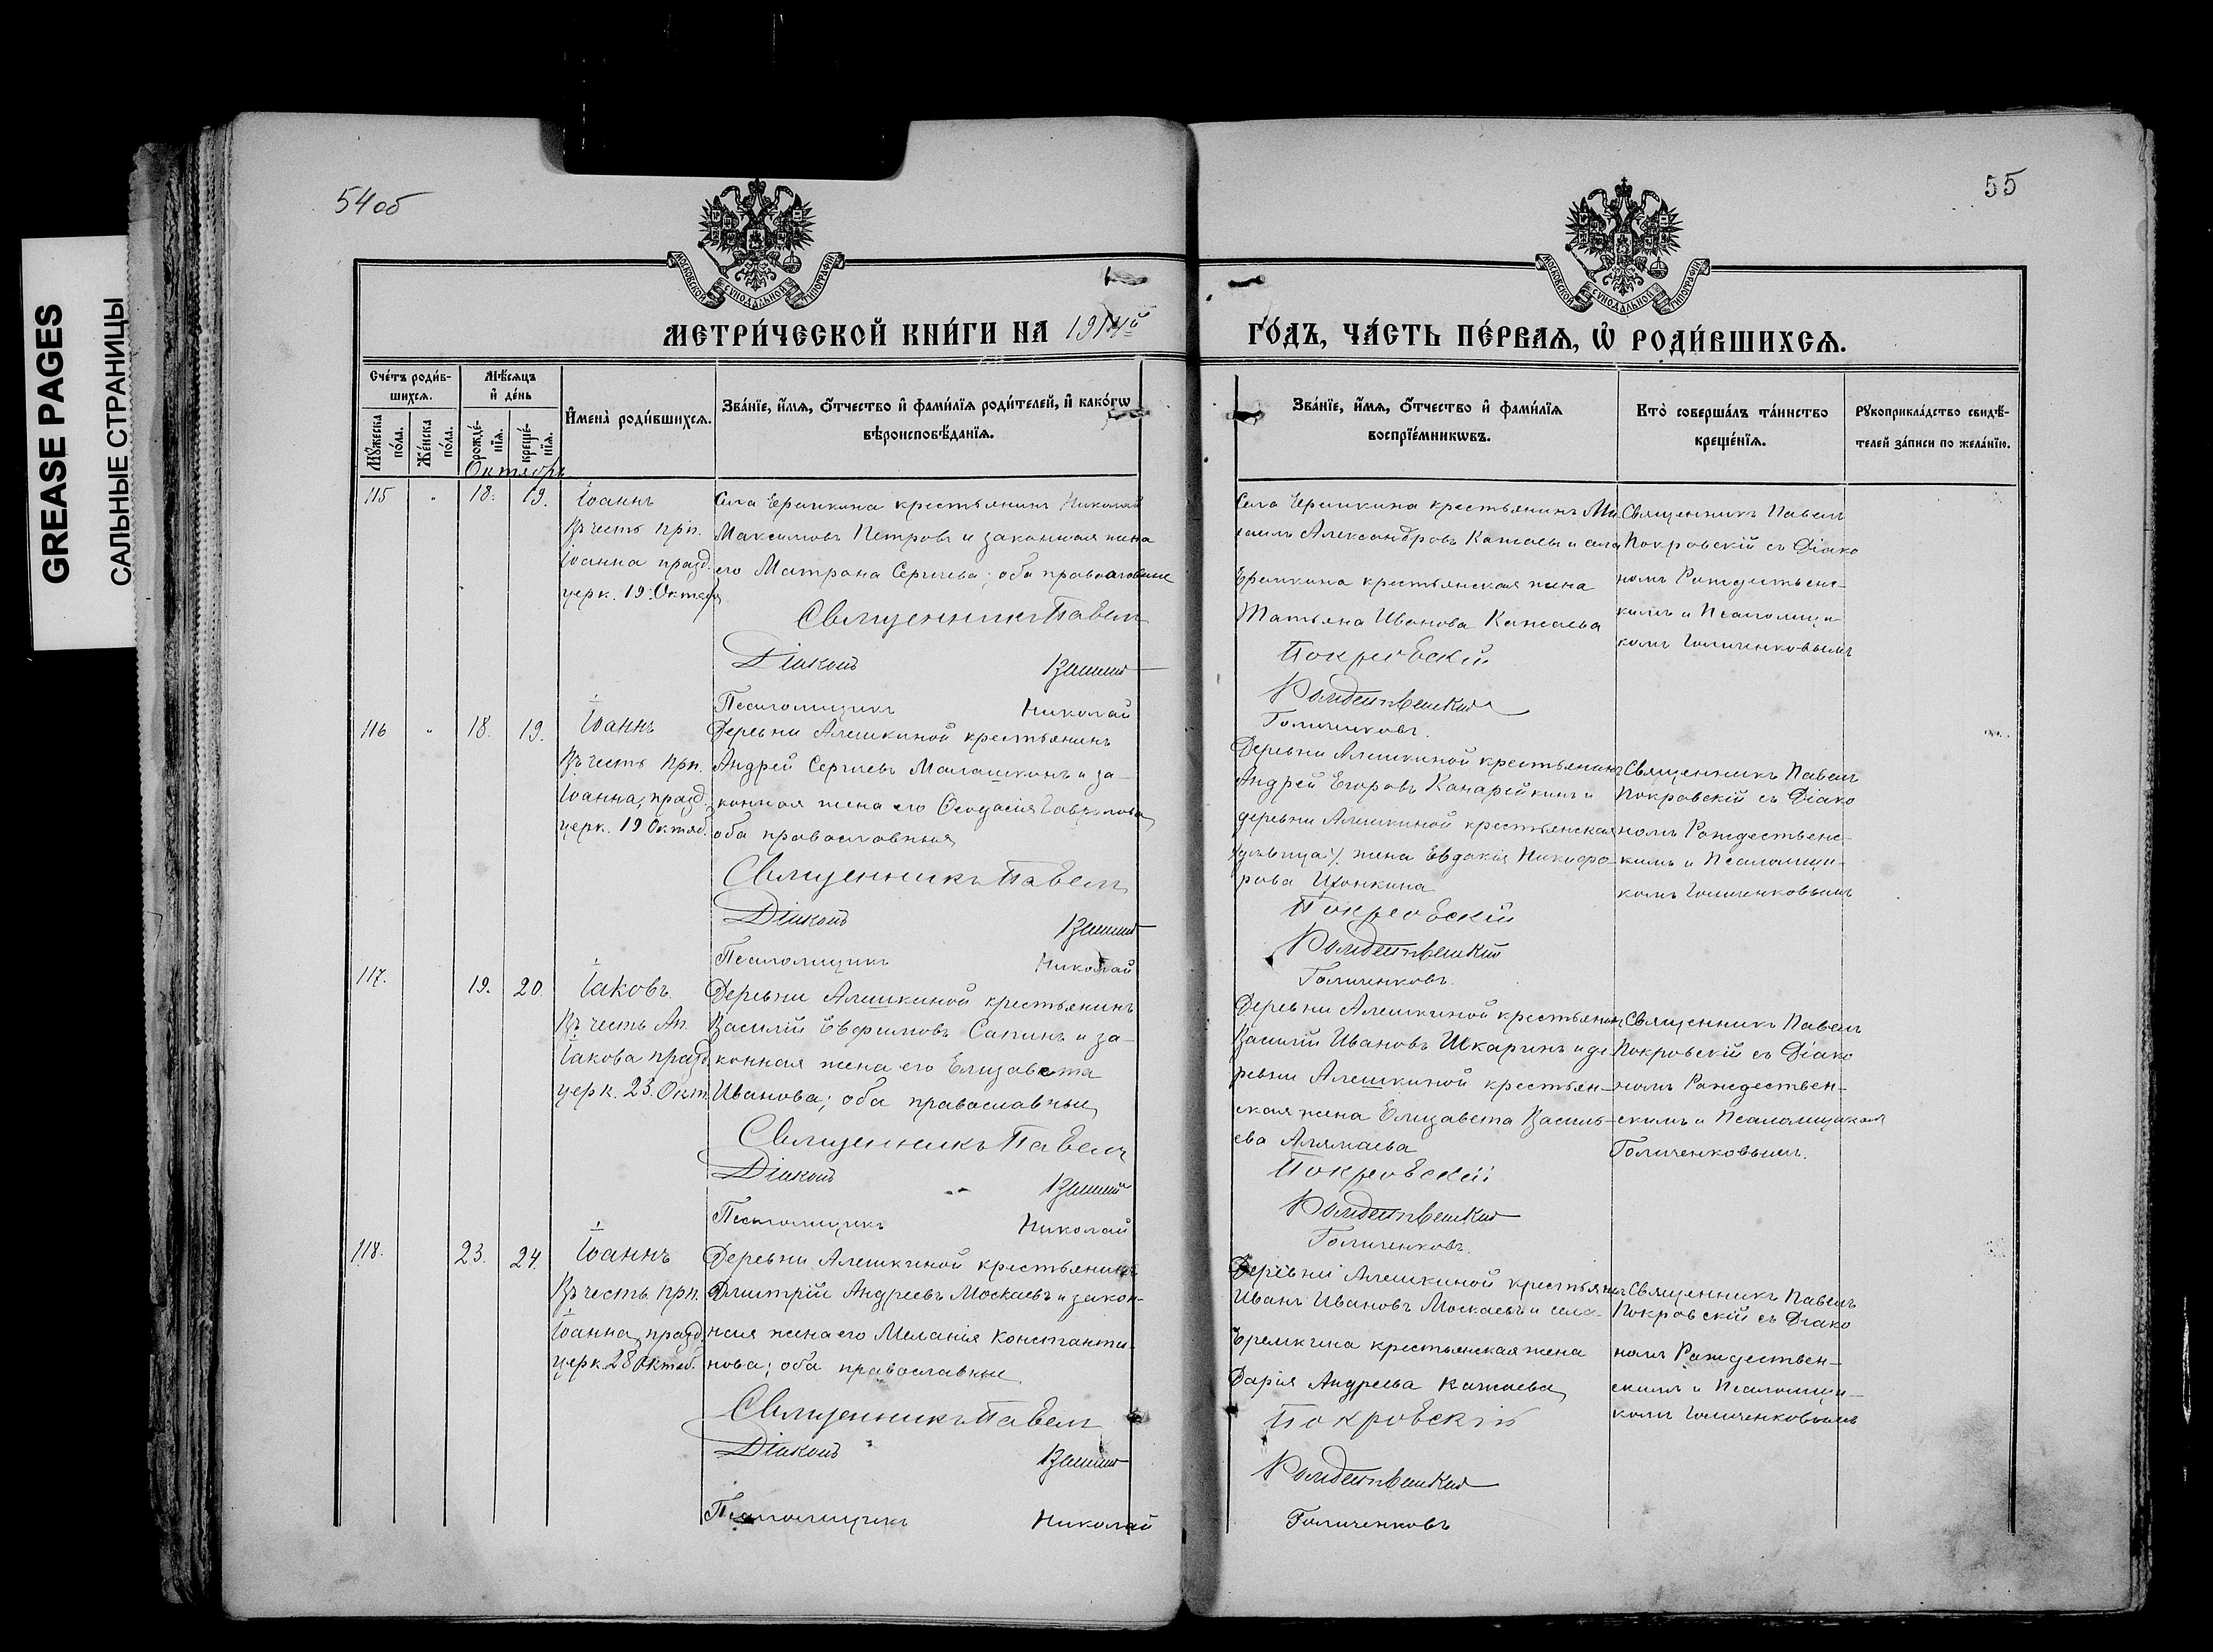 GREASE PAGES
САЛЬНЫЕ СТРАНИЦЫ
54об
55
МОСКОВСКОЙ СѴНОДАЛЬНОЙ ТИПОГРАФІИ
МОСКОВСКОЙ СѴНОДАЛЬНОЙ ТИПОГРАФІИ
МЕТРИ́ЧЕСКОЙ КНИ́ГИ НА 1914й
ГО́ДЪ, ЧА́СТЬ ПЕ́РВАѦ, Ѡ҆ РОДИ́ВШИХСѦ.
Сче́тъ роди́в-
шихсѧ.
Мѹ́жеска
по́ла.
Же́нска
по́ла.
Мѣ́сѧцъ
и҆ де́нь
рожде́-
нїѧ.
креще́-
нїѧ.
И҆мена̀ роди́вшихсѧ.
Зва́нїе, и҆́мѧ, ѻ҆́тчество и҆ фами́лїѧ роди́телей, и҆ како́гѡ
вѣроисповѣ́данїѧ.
Зва́нїе, и҆́мѧ, ѻ҆́тчество и҆ фами́лїѧ
воспрїе́мникѡвъ.
Кто̀ соверша́лъ та́инство
креще́нїѧ.
Рѹкоприкла́дство свидѣ́-
телей за́писи по жела́нїю.
Октябрь
115 " 18. 19.
Іоаннъ
Въ честь прп.
Іоанна празд.
церк. 19. Октяб
Села Еремкина крестьянинъ Николай
Максимовъ Петровъ и законная жена
его Матрона Сергиева; оба православные
Священникъ Павелъ
Діаконъ Василій
Псаломщикъ Николай
Села Еремкина крестьянинъ Ми
хаилъ Александровъ Катаевъ и села
Еремкина крестьянская жена
Татьяна Иванова Катаева
Покровскій
Рождественскій
Голиченковъ.
Священникъ Павелъ
Покровскій съ Діако
номъ Рождественс-
кимъ и Псаломщи-
комъ Голиченковымъ
116 " 18. 19.
Іоаннъ
Въ честь прп.
Іоанна, празд.
церк. 19 Октяб.
Деревни Алешкиной крестьянинъ
Андрей Сергиевъ Малашкинъ и за-
конная жена его Ѳеодосія Гаврилова,
оба православныя
Священникъ Павелъ
Діаконъ Василій
Псаломщикъ Николай
Деревни Алешкиной крестьянинъ
Андрей Егоровъ Канарейкинъ и
деревни Алешкиной крестьянская
жена Евдокія Никифо-
рова
Покровскій
Рождественскій
Голиченковъ.
Священникъ Павелъ
Покровскій съ Діако
номъ Рождественс-
кимъ и Псаломщи-
комъ Голиченковымъ
117. 19. 20
Іаковъ
Въ честь Ап.
Іакова празд.
церк. 23. Окт.
Деревни Алешкиной крестьянинъ
Василій Евфимовъ Сапинъ и за-
конная жена его Елизавета
Иванова; оба православные
Священникъ Павелъ
Діаконъ Василій
Псаломщикъ Николай
Деревни Алешкиной крестьянин
Василій Ивановъ Шкаринъ и де-
ревни Алешкиной крестьян-
ская жена Елизавета Василь-
ева
Покровскій
Рождественскій
Голиченковъ.
Священникъ Павелъ
Покровскій съ Діако
номъ Рождествен-
скимъ и Псаломщикомъ
Голиченковымъ.
118. 23. 24.
Іоаннъ
Въ честь прп.
Іоанна, празд.
церк. 28 Октяб.
Деревни Алешкиной крестьянинъ
Дмитрій Андреевъ Москаевъ и закон-
ная жена его Меланія Константи-
нова; оба православные
Священникъ Павелъ
Діаконъ Василій
Псаломщикъ Николай
Деревни Алешкиной крестьянинъ
Иванъ Ивановъ Москаевъ и села
Еремкина крестьянская жена
Дарія Андреева Катаева
Покровскій
Рождественскій
Голиченковъ
Священникъ Павелъ
Покровскій съ Діако
номъ Рождествен-
скимъ и Псаломщи-
комъ Голиченковымъ